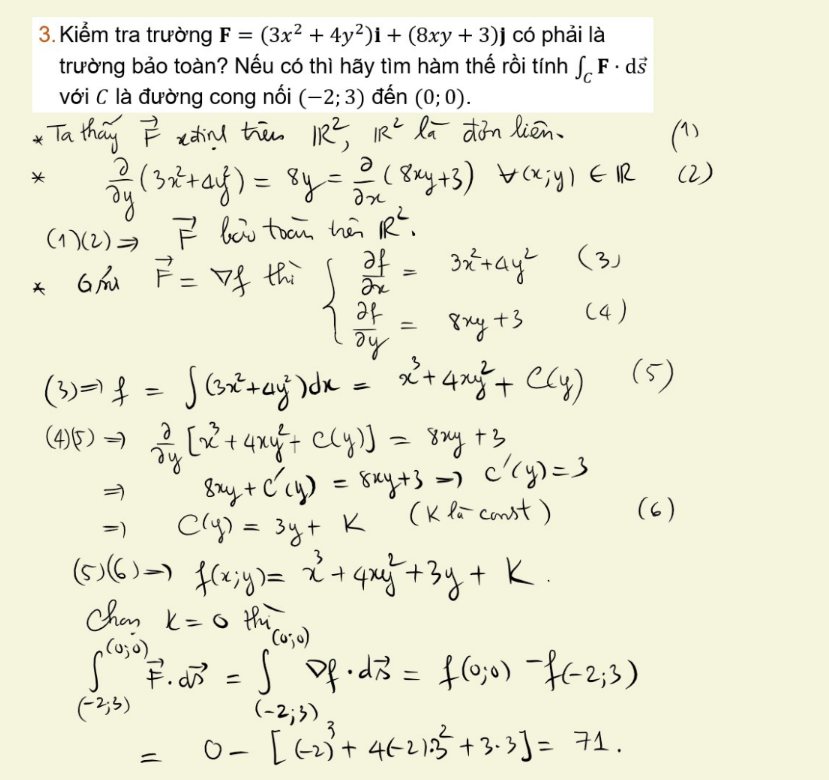 3. Kiểm tra trường F = (3x² + 4y²)i + (8xy + 3)j có phải là
trường bảo toàn? Nếu có thì hãy tìm hàm thế rồi tính ∫_C F · ds⃗
với C là đường cong nối (−2; 3) đến (0; 0).
* Ta thấy F⃗ xđịnh trên ℝ², ℝ² là đơn liên. (1)
* ∂/∂y (3x²+4y²) = 8y = ∂/∂x (8xy+3) ∀(x;y) ∈ ℝ (2)
(1)(2) ⇒ F⃗ bảo toàn trên ℝ².
* Gsử F⃗ = ∇f thì { ∂f/∂x = 3x²+4y² (3)
∂f/∂y = 8xy+3 (4)
(3) ⇒ f = ∫(3x²+4y²)dx = x³+4xy²+ C(y) (5)
(4)(5) ⇒ ∂/∂y [x³+4xy²+ C(y)] = 8xy+3
⇒ 8xy+C'(y) = 8xy+3 ⇒ C'(y)=3
⇒ C(y) = 3y+ K (K là const) (6)
(5)(6) ⇒ f(x;y)= x³+4xy²+3y+ K.
Chọn K=0 thì
∫_(-2;3)^(0;0) F⃗.ds⃗ = ∫_(-2;3)^(0;0) ∇f.ds⃗ = f(0;0) −f(-2;3)
= 0− [(-2)³+ 4(-2).3²+3.3]= 71.